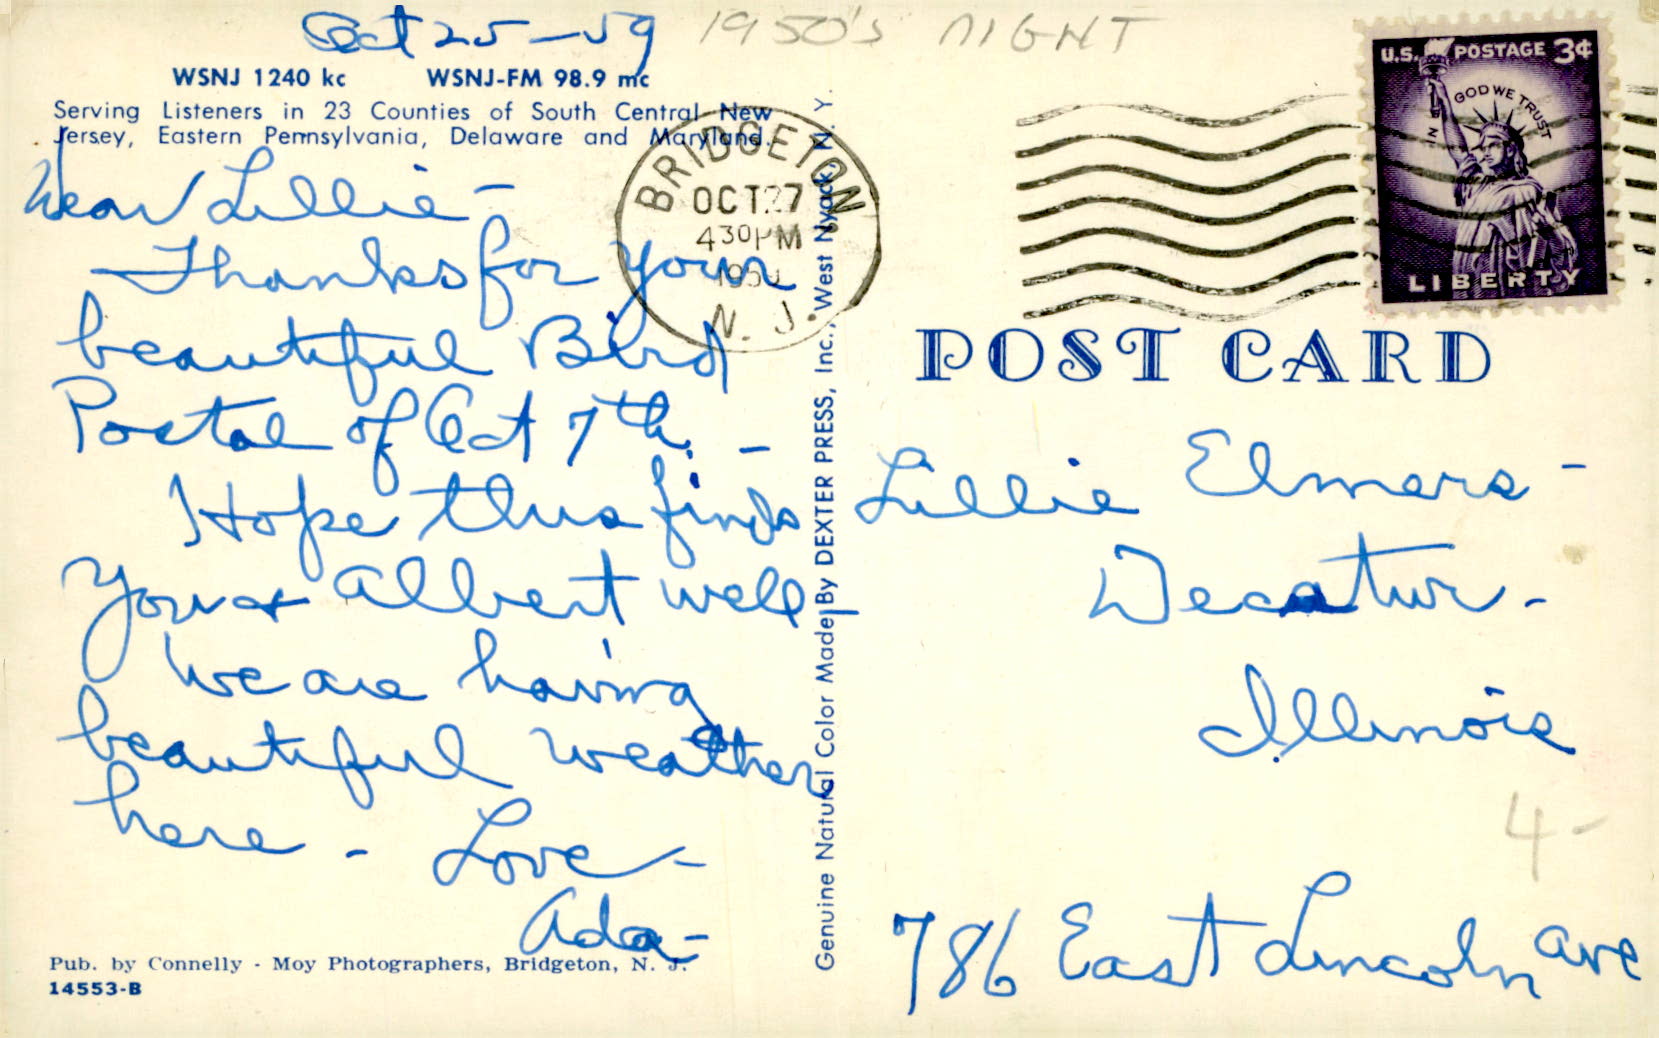 Oct 25-59
1950's NIGHT
WSNJ 1240 kc WSNJ-FM 98.9 mc
Serving Listeners in 23 Counties of South Central New
Jersey, Eastern Pennsylvania, Delaware and Maryland.
Dear Lillie -
Thanks for your
beautiful Bird
Postal of Oct 7th. -
Hope this finds
you & Albert well -
We are having
beautiful weather
here - Love -
Ada -
Pub. by Connelly - Moy Photographers, Bridgeton, N. J.
14553-B
Genuine Natural Color Made By DEXTER PRESS, Inc., West Nyack, N. Y.
BRIDGETON
OCT 27
4 30 PM
N. J.
U.S. POSTAGE 3¢
IN GOD WE TRUST
LIBERTY
POST CARD
Lillie Elmers -
Decatur -
Illinois
4-
786 East Lincoln Ave